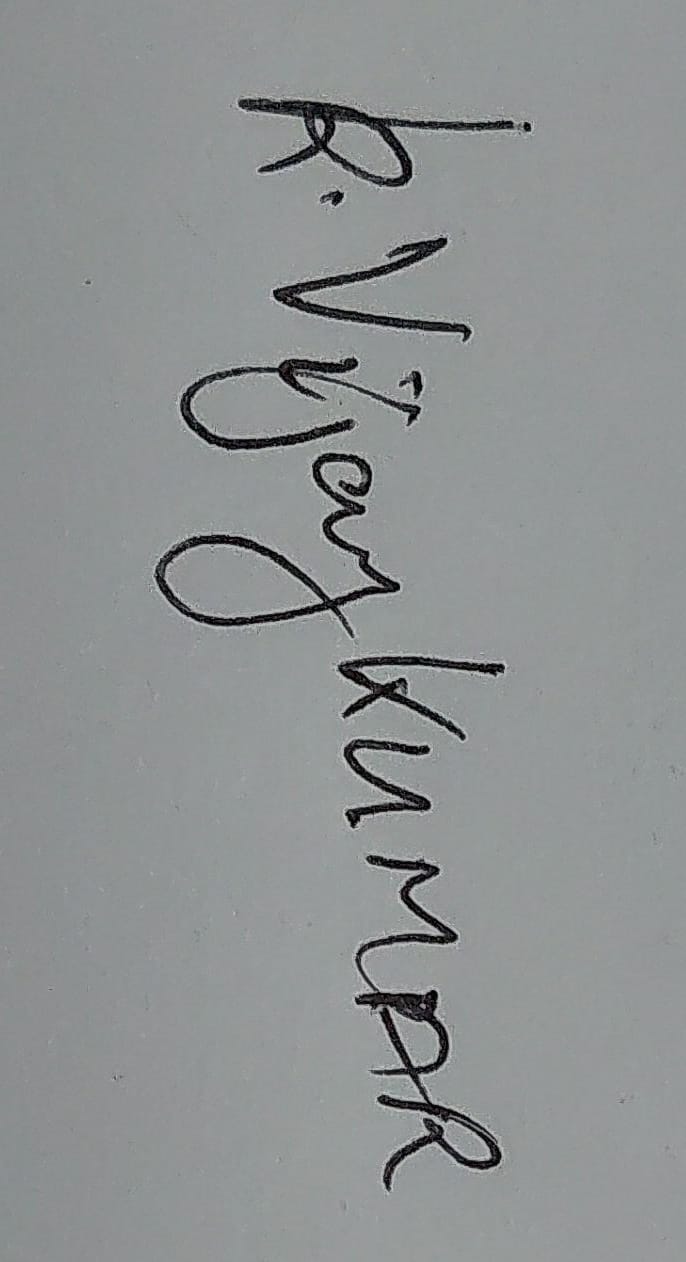 K. VijayKUMAR